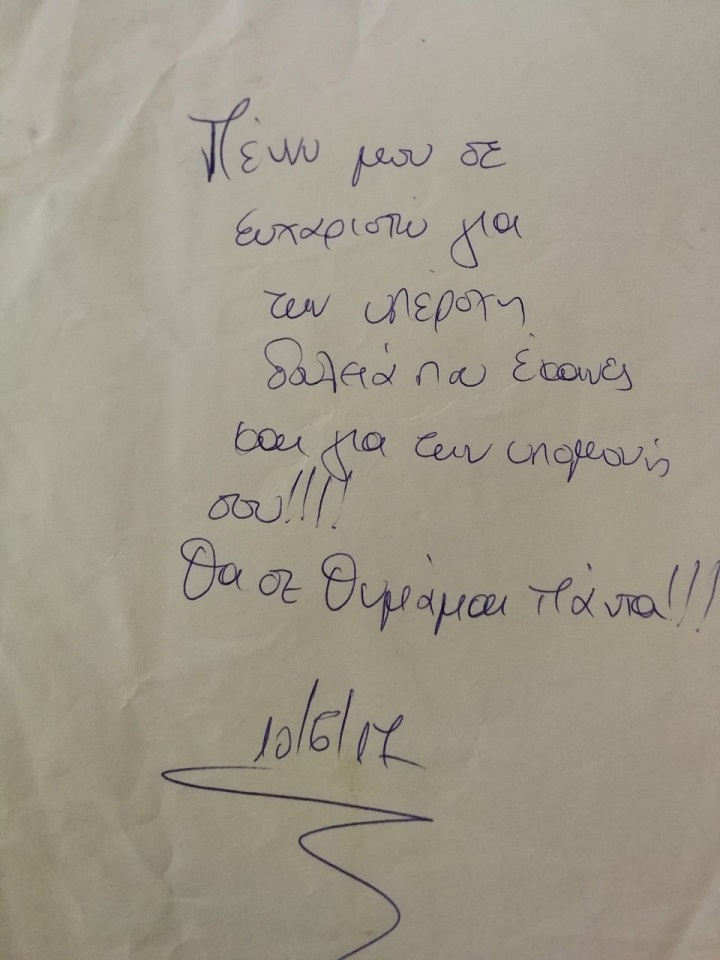 Πέννυ μου σε
ευχαριστω για
την υπέροχη
δουλειά που έκανες
και για την υπομονή
σου!!!!
Θα σε θυμάμαι πάντα!!!
10/6/17